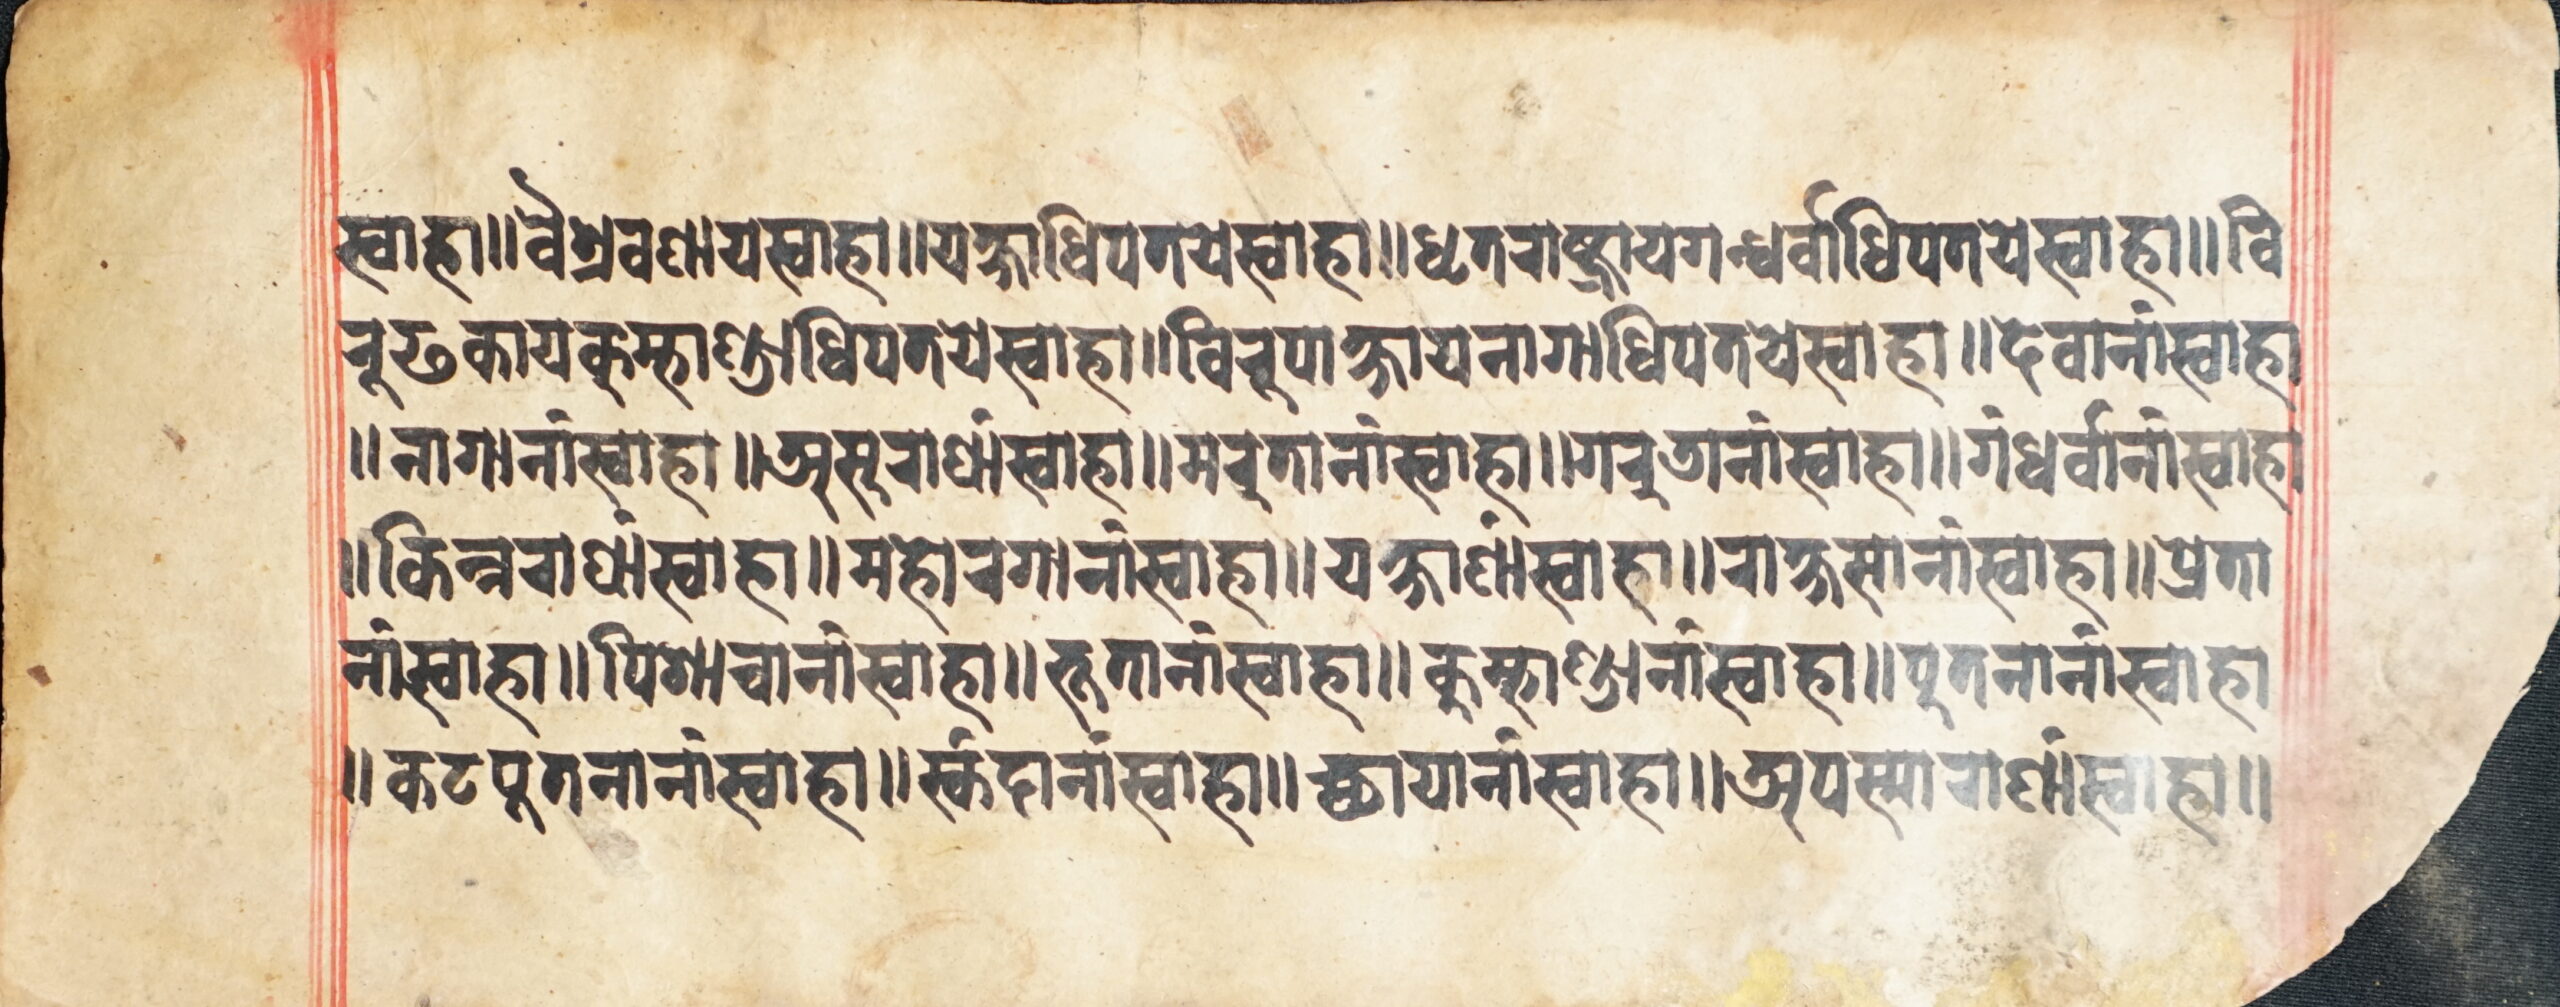 स्वाहा॥वैश्रवणायस्वाहा॥यक्षाधिपतयेस्वाहा॥धृतराष्ट्रायगन्धर्वाधिपतयेस्वाहा॥वि
रुढकायकुम्भाण्डाधिपतयेस्वाहा॥विरुपाक्षायनागाधिपतयेस्वाहा॥देवानांस्वाहा
॥नागानांस्वाहा॥असुराणांस्वाहा॥मरुतानांस्वाहा॥गरुडानांस्वाहा॥गंधर्वानांस्वाहा
॥किन्नराणांस्वाहा॥महोरगानांस्वाहा॥यक्षाणांस्वाहा॥राक्षसानांस्वाहा॥प्रेता
नांस्वाहा॥पिशाचानांस्वाहा॥भूतानांस्वाहा॥कुम्भाण्डानांस्वाहा॥पुतनानांस्वाहा
॥कटपुतनानांस्वाहा॥स्कंदानांस्वाहा॥च्छायानांस्वाहा॥अपस्माराणांस्वाहा॥